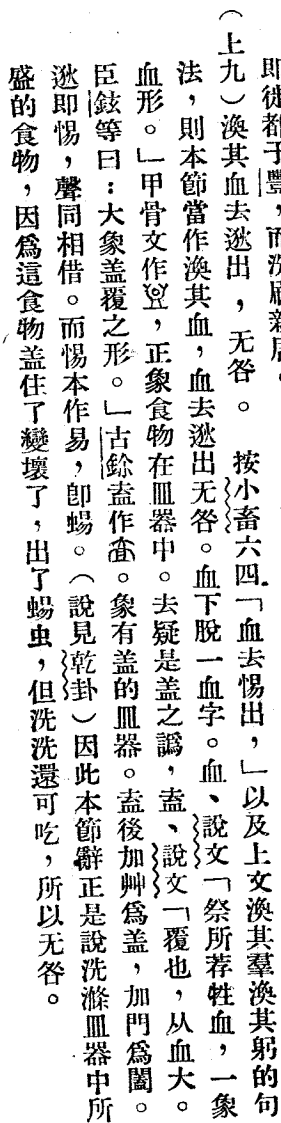 即徙都于豐，而洗刷新居。
（上九）渙其血去逖出，无咎。　按小畜六四「血去惕出，」以及上文渙其羣渙其躬的句
法，則本節當作渙其血，血去逖出无咎。血下脫一血字。血、說文「祭所荐牲血，一象
血形。」甲骨文作，正象食物在皿器中。去疑是盖之譌，盍、說文「覆也，从血大。
臣鉉等曰：大象盖覆之形。」古鉨盍作。象有盖的皿器。盍後加艸爲盖，加門爲闔。
逖即惕，聲同相借。而惕本作易，卽蜴。（說見乾卦）因此本節辭正是說洗滌皿器中所
盛的食物，因爲這食物盖住了變壞了，出了蜴虫，但洗洗還可吃，所以无咎。